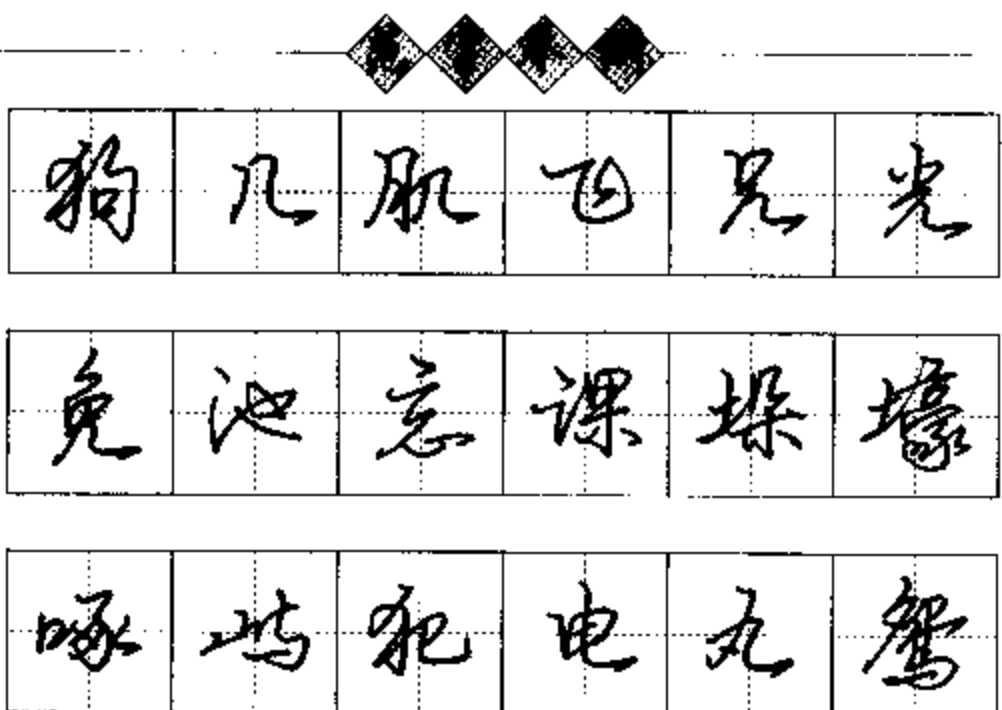 狗几肌飞兄光
兔池忘课垛壕
啄屿犯电丸鸳